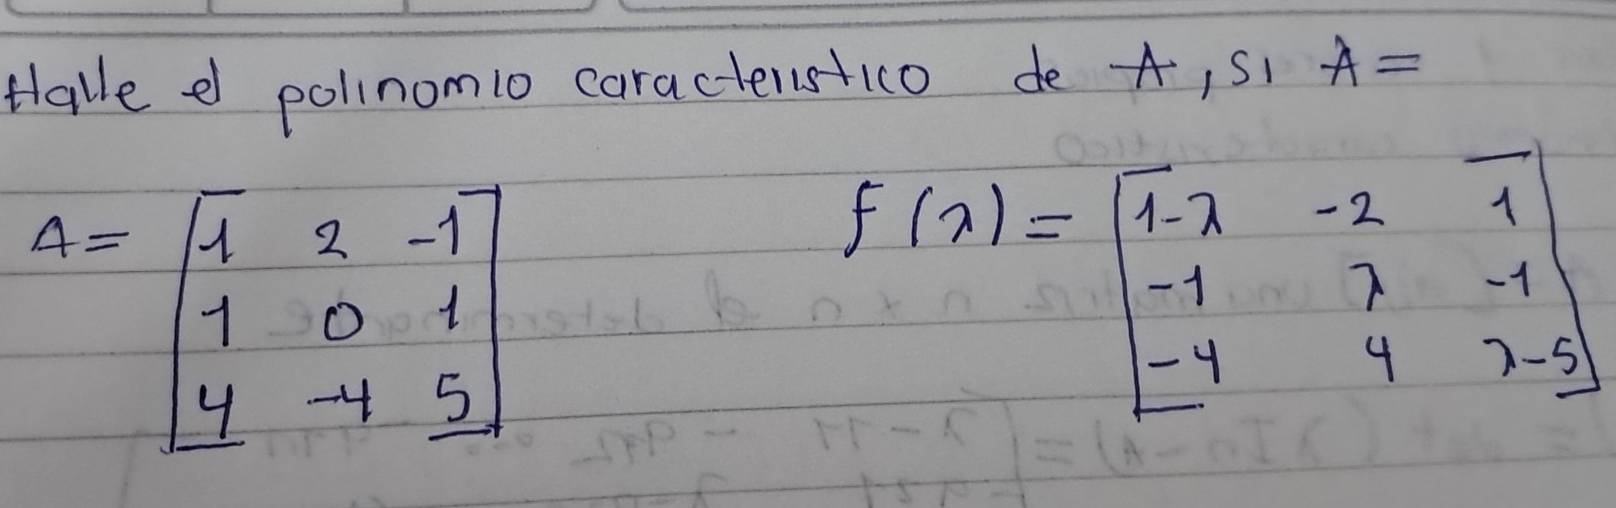 Halle el polinomio caracteristico de A, si A=
A= [1 2 -1
1 0 1
4 -4 5]
f(λ)= [1-λ -2 1
-1 λ -1
-4 4 λ-5]